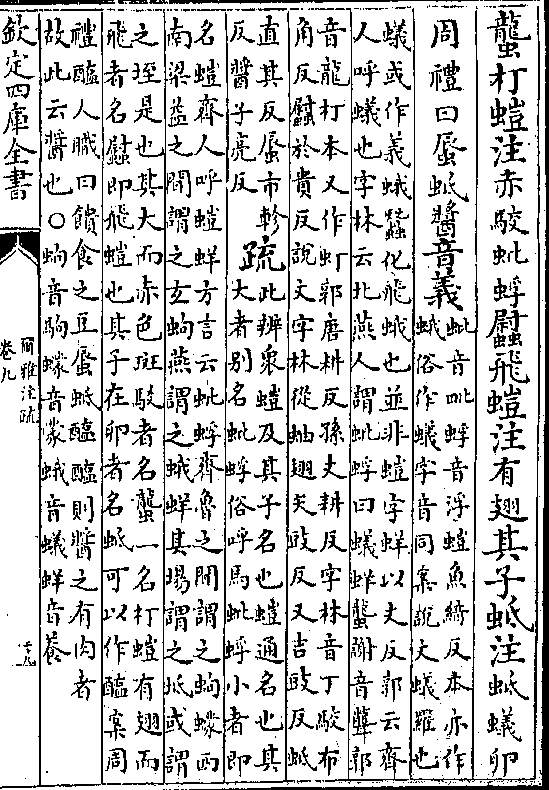 蠪朾螘注赤駁蚍蜉䘎飛螘注有翅其子蚳注蚳蟻卵
周禮曰蜃蚳醬音義
蚍音毗蜉音浮螘魚綺反本亦作
蛾俗作蟻字音同案說文蟻羅也
蟻或作義蛾蠶化飛蛾也並非螘字蛘以丈反郭云齊
人呼蟻也字林云北燕人謂蚍蜉曰蟻蛘蠪謝音聾郭
音龍朾本又作虰郭唐耕反孫丈耕反字林音丁駮布
角反䘎於貴反說文字林從蚰翅失豉反又吉豉反蚳
直其反蜃市軫
反醬子亮反
疏
此辨衆螘及其子名也螘通名也其
大者别名蚍蜉俗呼馬蚍蜉小者即
名螘齊人呼螘蛘方言云蚍蜉齊魯之間謂之蚼蟓西
南梁益之間謂之玄蚼燕謂之蛾蛘其場謂之坻或謂
之垤是也其大而赤色斑駮者名蠪一名朾螘有翅而
飛者名䘎即飛螘也其子在卵者名蚳可以作醢案周
禮醢人職曰饋食之豆蜃蚳醢醢則醬之有肉者
故此云醬也○蚼音駒蟓音蒙蛾音蟻蛘音養
欽定四庫全書
爾雅注疏
卷九